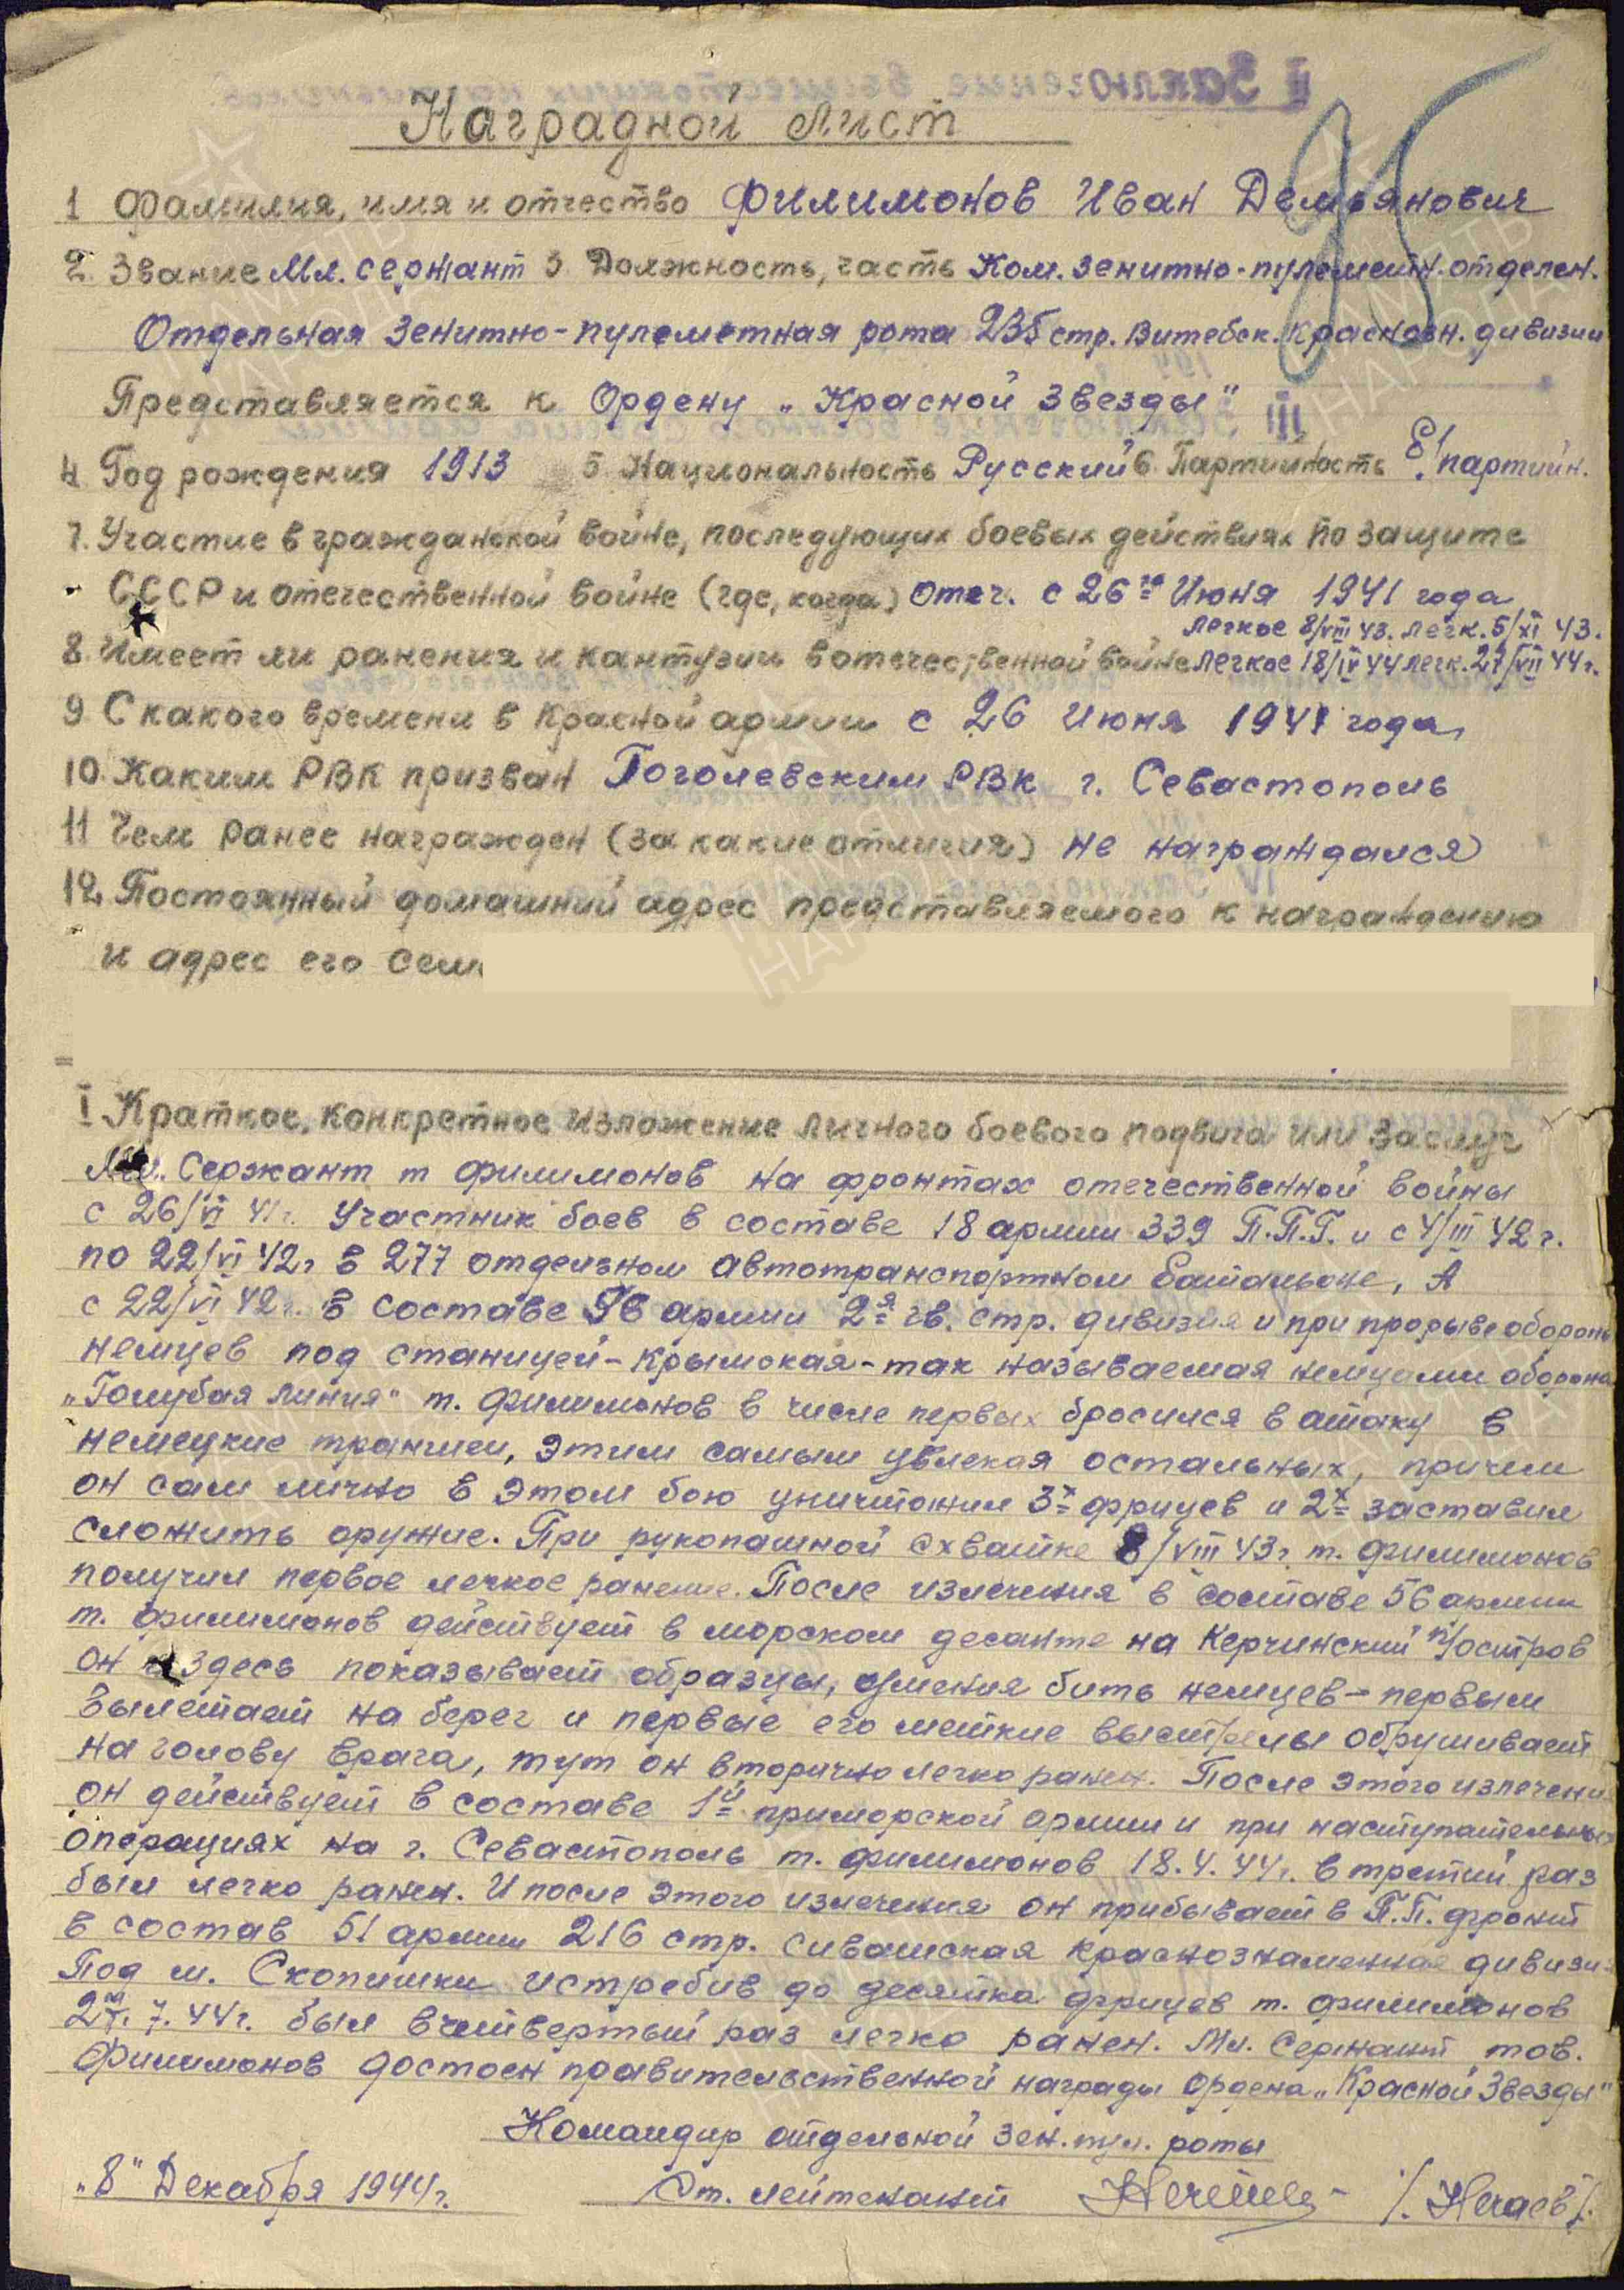 Наградной лист
95
1 Фамилия, имя и отчество Филимонов Иван Демьянович
2. Звание Мл. сержант 3 Должность, часть Ком. зенитно-пулеметн. отделен.
Отдельная зенитно-пулеметная рота 235 стр. Витебск. Краснозн. дивизии
Представляется к Ордену „Красной Звезды"
4 Год рождения 1913 5 Национальность Русский 6 Партийность Б/партийн.
7. Участие в гражданской войне, последующих боевых действиях по защите
СССР и отечественной войне (где, когда) Отеч. с 26го Июня 1941 года
легкое 8/VIII 43. легк. 5/XI 43.
8. Имеет ли ранения и кантузии в отечественной войне легкое 18/IV 44 легк. 27/VII 44г.
9 С какого времени в Красной армии с 26 Июня 1941 года,
10. Каким РВК призван Гоголевским РВК г. Севастополь
11 Чем ранее награжден (за какие отличия) не награждался
12 Постоянный домашний адрес представляемого к награждению
и адрес его семи
I Краткое, конкретное изложение личного боевого подвига или заслуг
Мл. Сержант т Филимонов на фронтах отечественной войны
с 26/VI 41г. Участник боев в составе 18 армии 339 П.П.Г. и с 4/III 42г.
по 22/VI 42г в 277 отдельном автотранспортном батальоне, А
с 22/VI 42г. в составе 56 армии 2я гв. стр. дивизия и при прорыве обороны
немцев под станицей-Крымская-так называемая немцами оборона
„Голубая линия" т. Филимонов в числе первых бросился в атаку в
немецкие траншеи, этим самым увлекая остальных, причем
он сам лично в этом бою уничтожил 3х фрицев и 2х заставил
сложить оружие. При рукопашной схватке 8/VIII 43г. т. Филимонов
получил первое легкое ранение. После излечения в составе 56 армии
т. Филимонов действует в морском десанте на Керчинский п/остров
он и здесь показывает образцы, умения бить немцев-первым
вылетает на берег и первые его меткие выстрелы обрушивает
на голову врага, тут он вторично легко ранен. После этого излечени
он действует в составе 1й приморской армии и при наступательных
операциях на г. Севастополь т. Филимонов 18.4.44г. в третий раз
был легко ранен. И после этого излечения он прибывает в П.П. фронт
в состав 51 армии 216 стр. сивашская краснознаменная дивизи
Под м. Скопишки истребив до десятка фрицев т. Филимонов
27.7.44г. был в четвертый раз легко ранен. Мл. Сержант тов.
Филимонов достоен правительственной награды Ордена „Красной Звезды"
Командир отдельной зен. пул. роты
„8" Декабря 1944г. Ст. лейтенант /. Нечаев /.